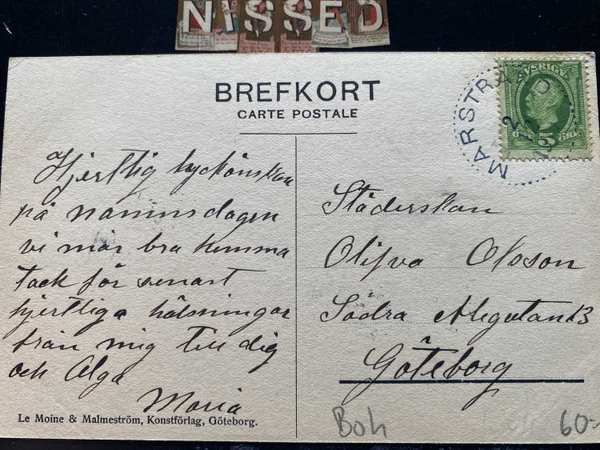 NISSED
BREFKORT
CARTE POSTALE
SVERIGE
5 ÖRE
MARSTRAND
Hjertlig lyckönskan
på namnsdagen
vi mår bra hemma
tack för senast
hjertliga hälsningar
från mig till dig
och Alga
Maria
Städerskan
Olifva Olsson
Södra Allegatan 13
Göteborg
Le Moine & Malmeström, Konstförlag, Göteborg.
Boh
60:-